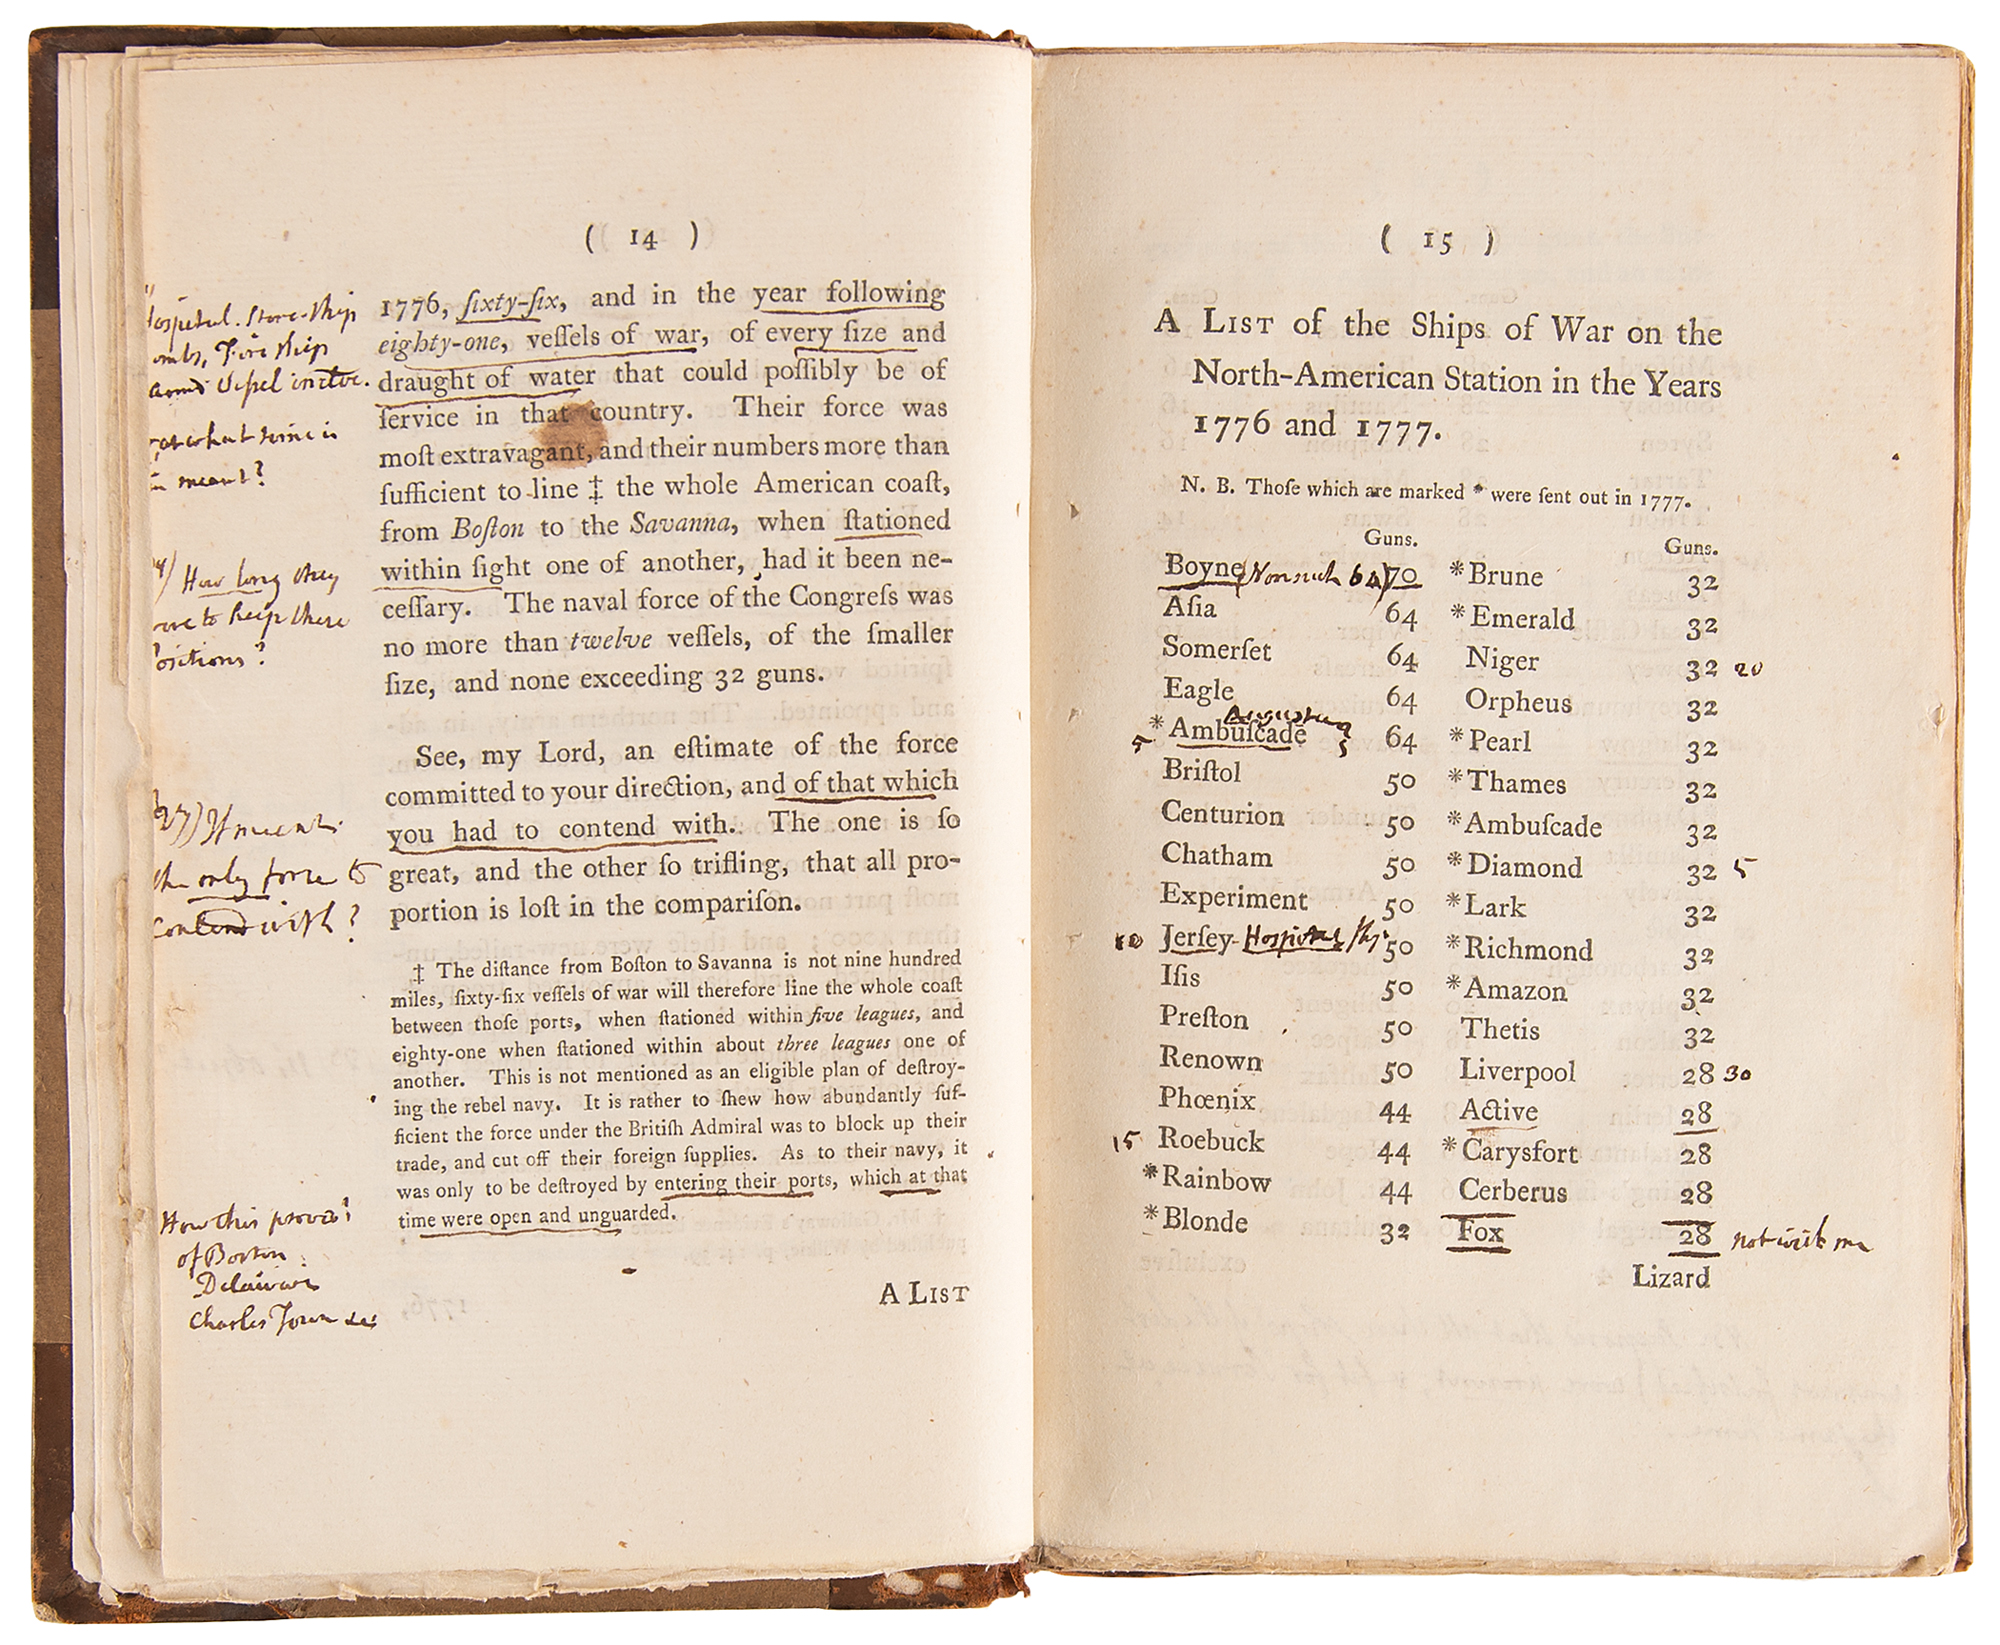 ( 14 )
1776, ſixty-ſix, and in the year following
eighty-one, veſſels of war, of every ſize and
draught of water that could poſſibly be of
ſervice in that country. Their force was
moſt extravagant, and their numbers more than
ſufficient to line ‡ the whole American coaſt,
from Boſton to the Savanna, when ſtationed
within ſight one of another, had it been ne-
ceſſary. The naval force of the Congreſs was
no more than twelve veſſels, of the ſmaller
ſize, and none exceeding 32 guns.
See, my Lord, an eſtimate of the force
committed to your direction, and of that which
you had to contend with. The one is ſo
great, and the other ſo trifling, that all pro-
portion is loſt in the compariſon.
‡ The diſtance from Boſton to Savanna is not nine hundred
miles, ſixty-ſix veſſels of war will therefore line the whole coaſt
between thoſe ports, when ſtationed within five leagues, and
eighty-one when ſtationed within about three leagues one of
another. This is not mentioned as an eligible plan of deſtroy-
ing the rebel navy. It is rather to ſhew how abundantly ſuf-
ficient the force under the Britiſh Admiral was to block up their
trade, and cut off their foreign ſupplies. As to their navy, it
was only to be deſtroyed by entering their ports, which at that
time were open and unguarded.
A LIST
Store-ship
Fire ship
what
meant?
How long they
to keep there
If meant
the only force to
contend with?
How this prova?
of Boston
Delaware
Charles Town
( 15 )
A LIST of the Ships of War on the
North-American Station in the Years
1776 and 1777.
N. B. Thoſe which are marked * were ſent out in 1777.
Guns. Guns.
Boyne (Nonsuch 64) 70 *Brune 32
Aſia 64 *Emerald 32
Somerſet 64 Niger 32 20
Eagle 64 Orpheus 32
Augusta
5 *Ambuſcade 64 *Pearl 32
Briſtol 50 *Thames 32
Centurion 50 *Ambuſcade 32
Chatham 50 *Diamond 32 5
Experiment 50 *Lark 32
10 Jerſey - Hospital ship 50 *Richmond 32
Iſis 50 *Amazon 32
Preſton 50 Thetis 32
Renown 50 Liverpool 28 30
Phœnix 44 Active 28
15 Roebuck 44 *Carysfort 28
*Rainbow 44 Cerberus 28
*Blonde 32 Fox 28 not with me
Lizard